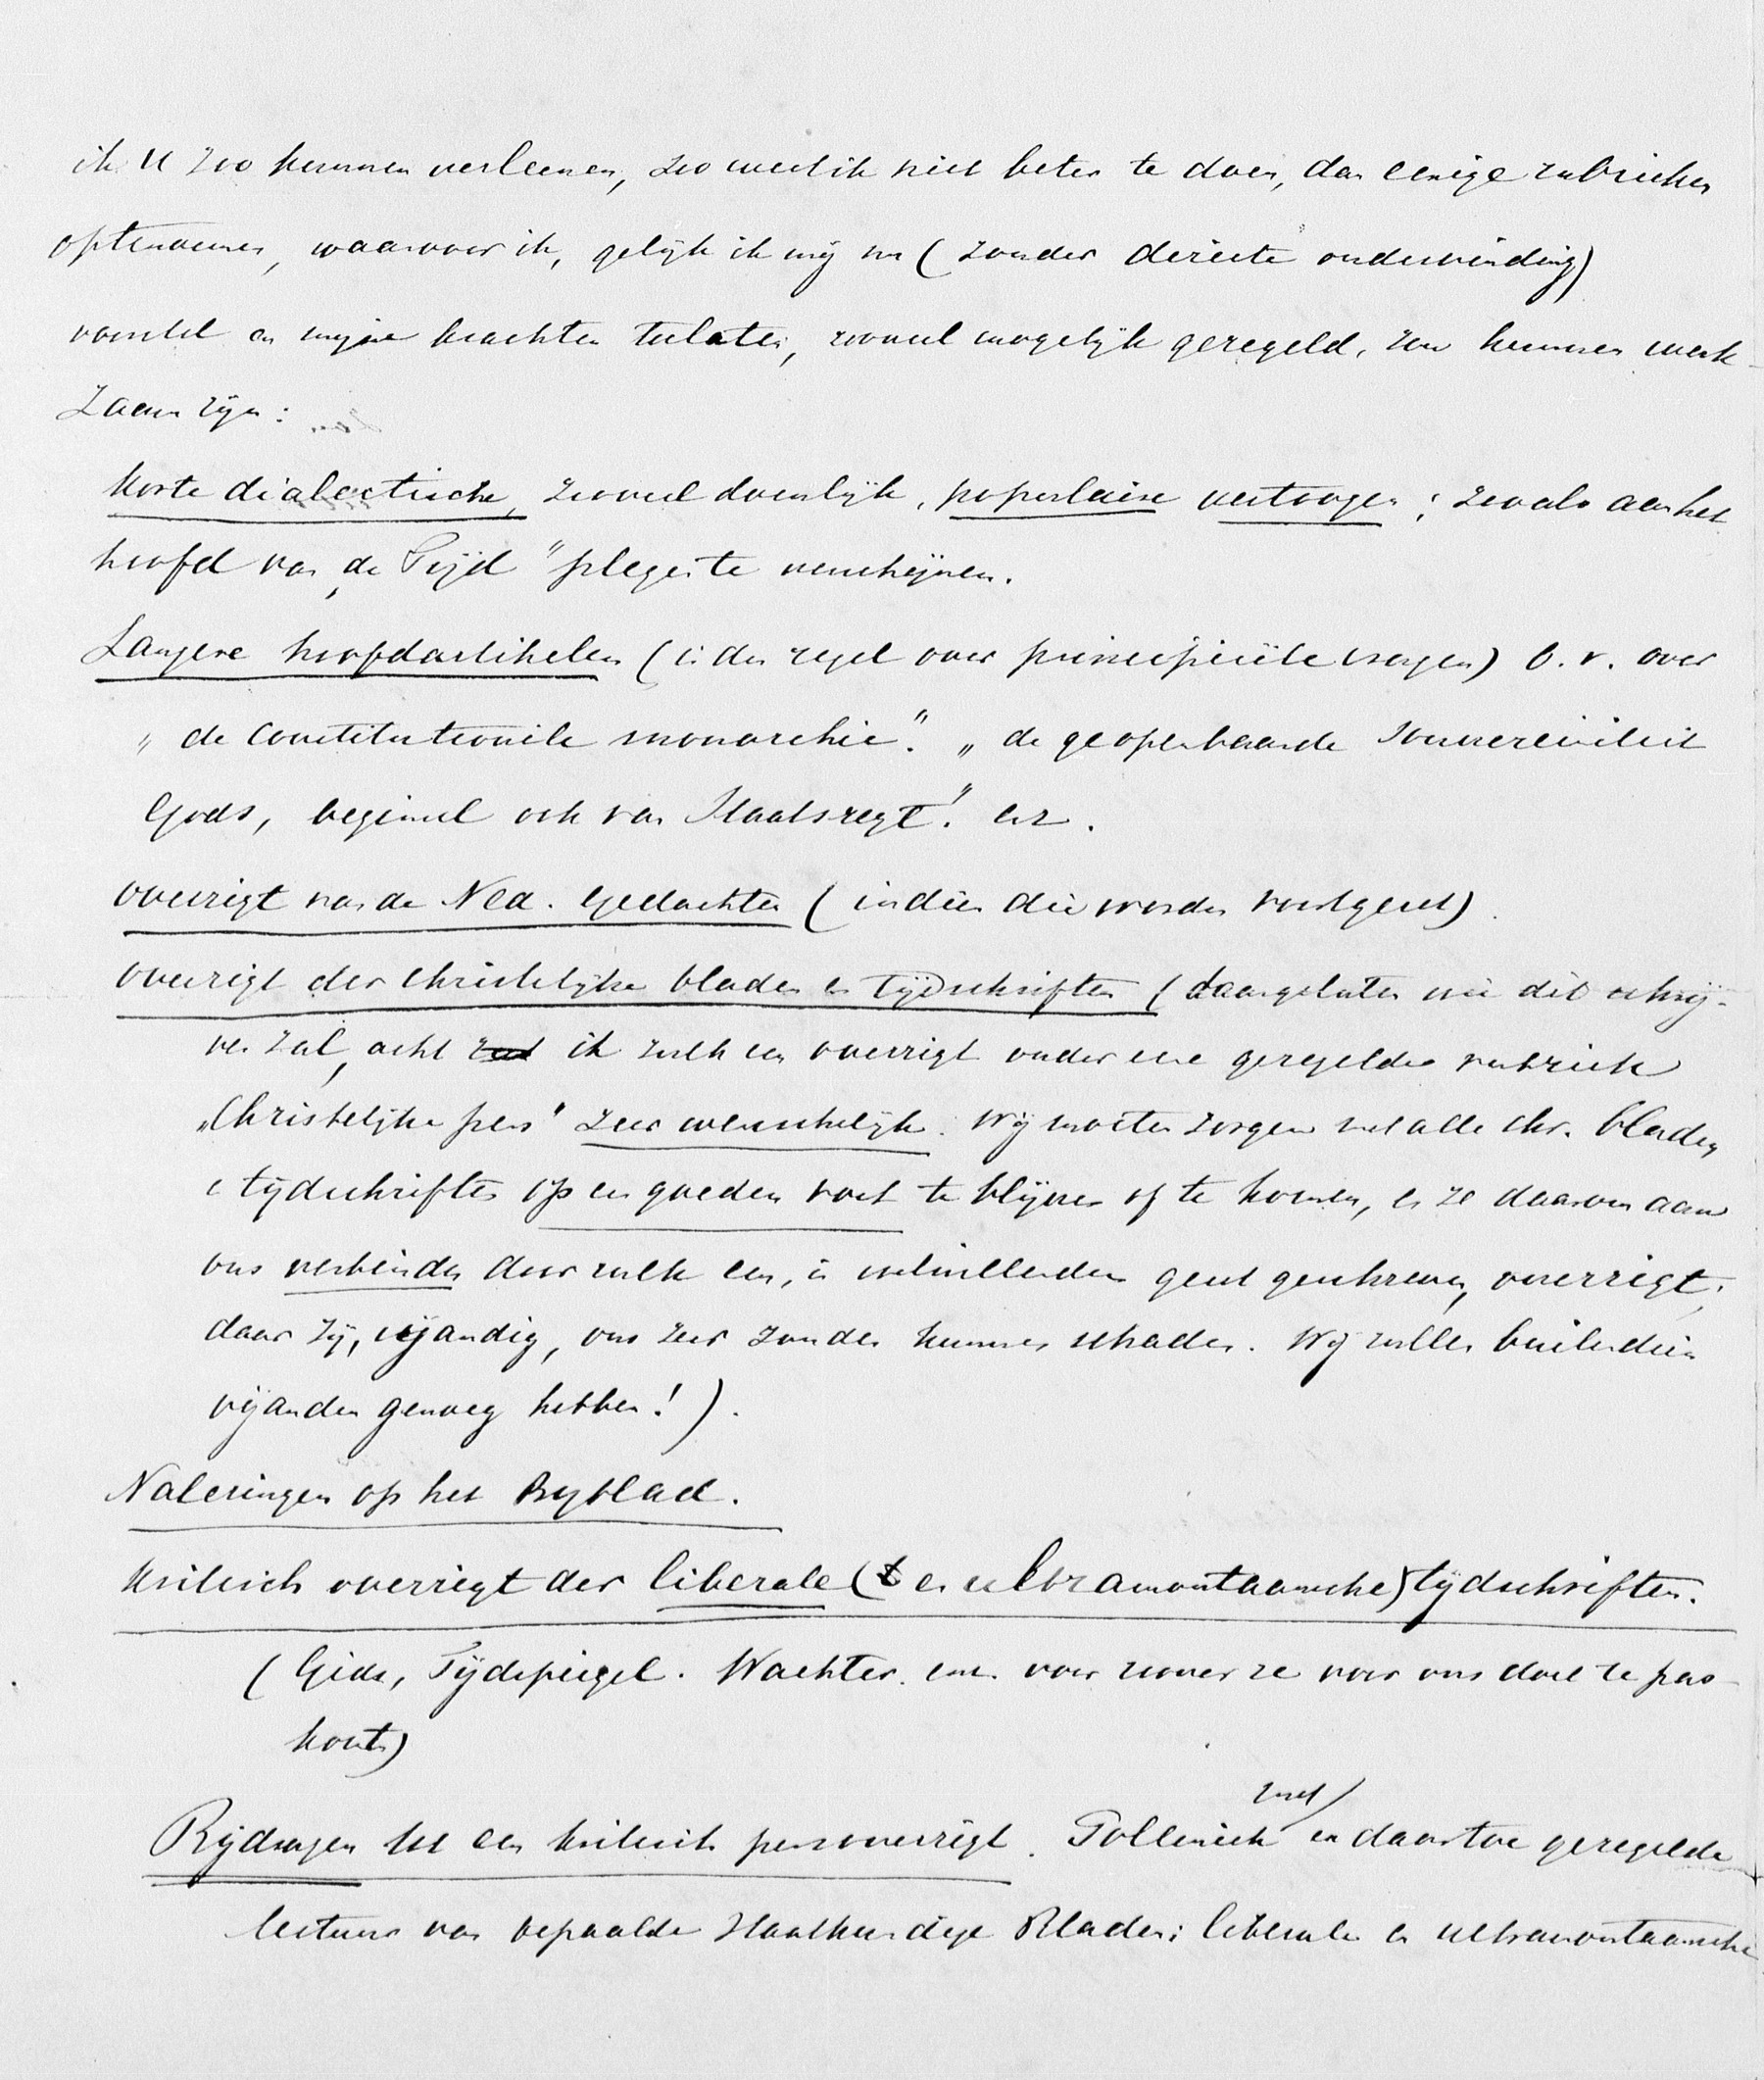 ik U zoo kunnen verleenen, zoo weet ik niet beter te doen, dan eenige rubrieken
optenoemen, waarvoor ik, gelijk ik mij nu (zonder directe ondervinding)
voorstel en mijne krachten toelaten, zooveel mogelijk geregeld, zou kunnen werk-
zaam zijn:
korte dialectische, zooveel doenlijk, populaire vertoogen; zooals aan het
hoofd van „de Tijd" plegen te verschijnen.
Langere hoofdartikelen (in den regel over principiëele vragen) b.v. over
„de constitutioneele monarchie". „de geopenbaarde Souvereiniteit
Gods, beginsel ook van Staatsregt". enz.
overzigt van de Ned. Gedachten (indien die worden voortgezet).
overzigt der Christelijke bladen en tijdschriften (daargelaten wie dit schrij-
ven zal, acht ik zulk een overzigt onder eene geregelde rubriek
„Christelijke pers" zeer wenschelijk. Wij moeten zorgen met alle chr. bladen
en tijdschriften op een goeden voet te blijven of te komen, en ze daarom aan
ons verbinden door zulk een, in welwillenden geest geschreven, overzigt;
daar zij, vijandig, ons zeer zouden kunnen schaden. Wij zullen buitendien
vijanden genoeg hebben!).
Nalezingen op het Byblad.
Kritisch overzigt der liberale (en ultramontaansche) tijdschriften.
(Gids, Tijdspiegel. Wachter. enz. voor zoover ze voor ons doel te pas
komen)
Bijdragen tot een kritisch persoverzigt. Polemiek met en daartoe geregelde
lectuur van bepaalde Staatkundige Bladen; liberale en ultramontaansche